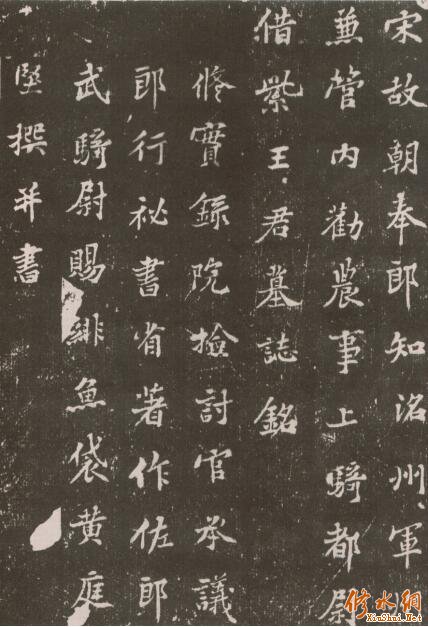 宋故朝奉郎知洺州軍州
兼管内勸農事上騎都尉
借紫王君墓誌銘
脩實錄院檢討官承議
郎行祕書省著作佐郎
武騎尉賜緋魚袋黄庭
堅撰并書
修水網
XiuShui.Net